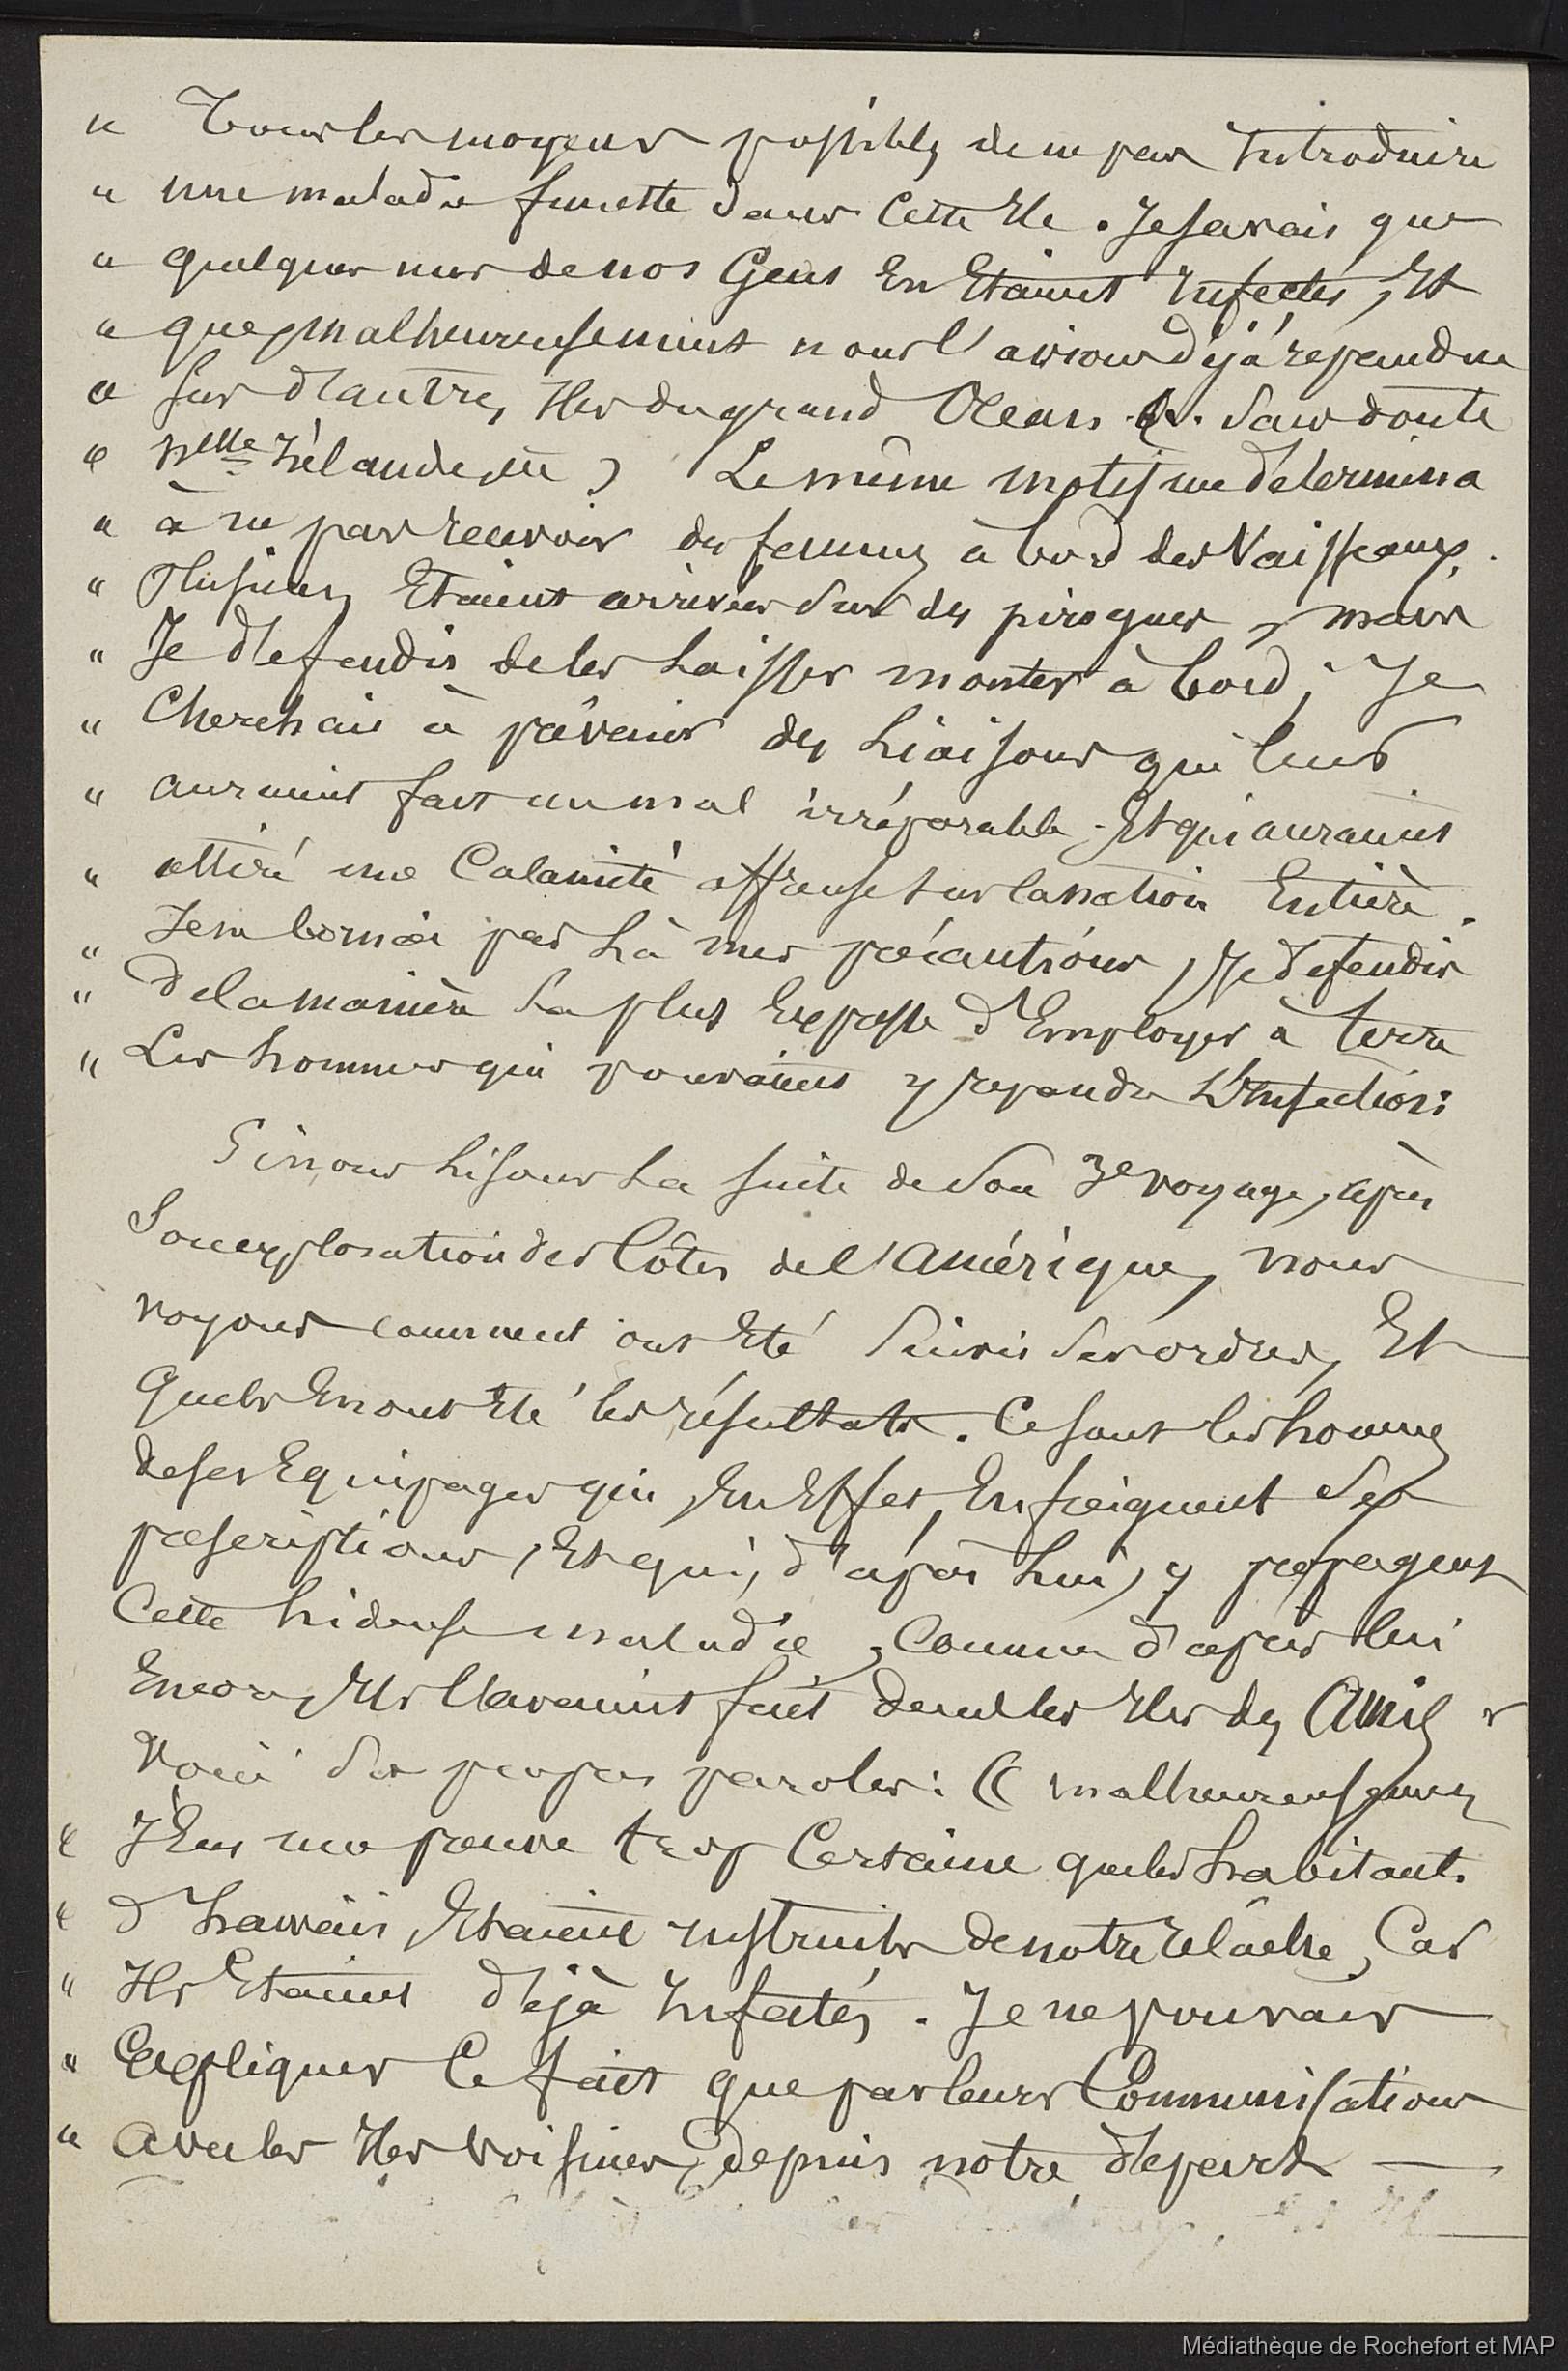 " Tous les moyens possibles de ne pas Introduire
" une maladie funeste dans Cette Ile. Je savais que
" quelques uns de nos Gens En Etaient Infectés, Et
" que, malheureusement nous l'avions déjà répandue
" Sur d'autres Iles du grand Océan. Sans doute
" Nlle Zélande, etc) Le même motif me détermina
" à ne pas recevoir des femmes à bord des Vaisseaux.
" Plusieurs Etaient arrivées Sur des pirogues, mais
" Je défendis de les Laisser monter à bord; Je
" Cherchais à prévenir des Liaisons qui leur
" auraient fait un mal irréparable, Et qui auraient
" attiré une Calamité affreuse Sur la nation Entière.
" Je ne bornai pas Là mes précautions, Je défendis
" de la manière La plus Expresse d'Employer à terre
" Les hommes qui pouvaient y répandre L'Infection:
Si nous Lisons La suite de Son 3e voyage, après
Son exploration des Côtes de l'Amérique, nous
voyons comment ont Eté Suivis Ses ordres, Et
quels En ont Eté les résultats. Ce sont les hommes
de ses Equipages qui, En Effet, Enfreignent Ses
prescriptions, Et qui, d'après Lui, y propagent
Cette hideuse maladie, Comme d'après Lui
Encore, Ils l'avaient fait dans les Iles des Amis
Voici Ses propres paroles: « malheureusement
" J'Eus une preuve trop Certaine que les habitants
" d'hawaïi, Etaient instruits de notre relâche, Car
" Ils Etaient déjà Infectés. Je ne pouvais
" Expliquer Ce fait que par leurs Communications
" avec les Iles voisines, depuis notre départ —